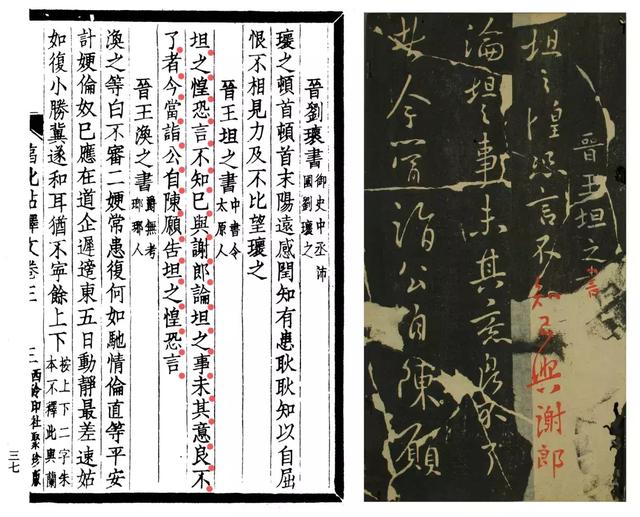 晉劉瓌書 御史中丞沛國劉瓌之
瓌之頓首頓首末陽遠感閏知有患耿耿知以自屈
恨不相見力及不比望瓌之
晉王坦之書 中書令太原人
坦之惶恐言不知已與謝郎論坦之事未其意良不
了者今當詣公自陳願告坦之惶恐言
晉王渙之書 爵無考瑯瑘人
渙之等白不審二嫂常患復何如馳情倫直等平安
計嫂倫奴已應在道企遲東五日動靜最差速姑
如復小勝冀遂和耳猶不寧餘上下 按上下二字朱本不釋此與蘭
帖釋文卷三 三 西泠印社聚珍版
三七
晉王坦之書
坦之惶恐言不知已與謝郎
論坦之事未其意良不了
者今當詣公自陳願